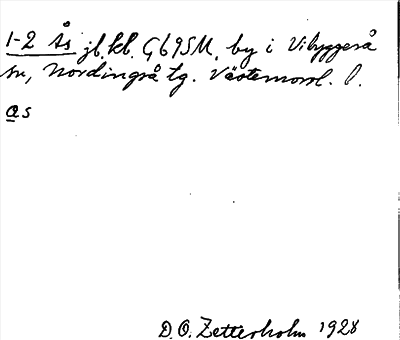 1-2 Ås jb.kl. G695M, by i Vibyggerå
sn, Nordingrå tg. Västernorrl. l.
as
D.O. Zetterholm 1928